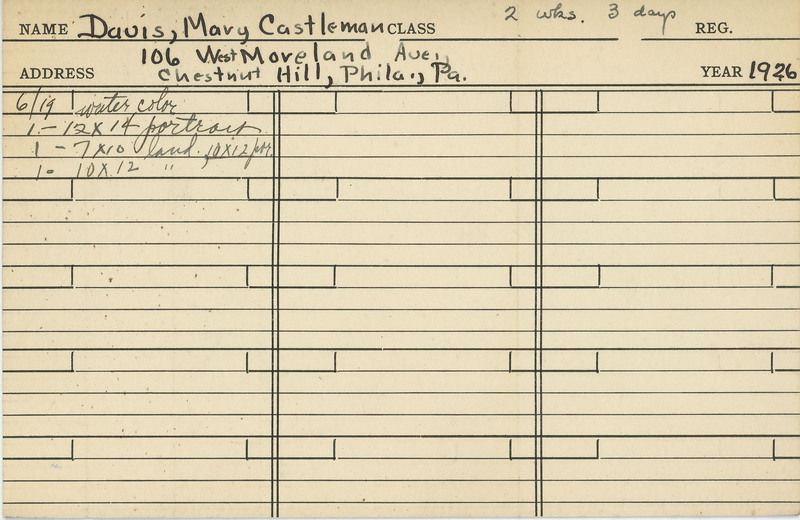 NAME Davis, Mary Castleman CLASS 2 wks. 3 days REG.
106 West Moreland Ave.,
ADDRESS Chestnut Hill, Phila., Pa. YEAR 1926
6/19 water color
1 - 12 x 14 portrait
1 - 7 x 10 land. 10 x 12 por.
1 - 10 x 12 "